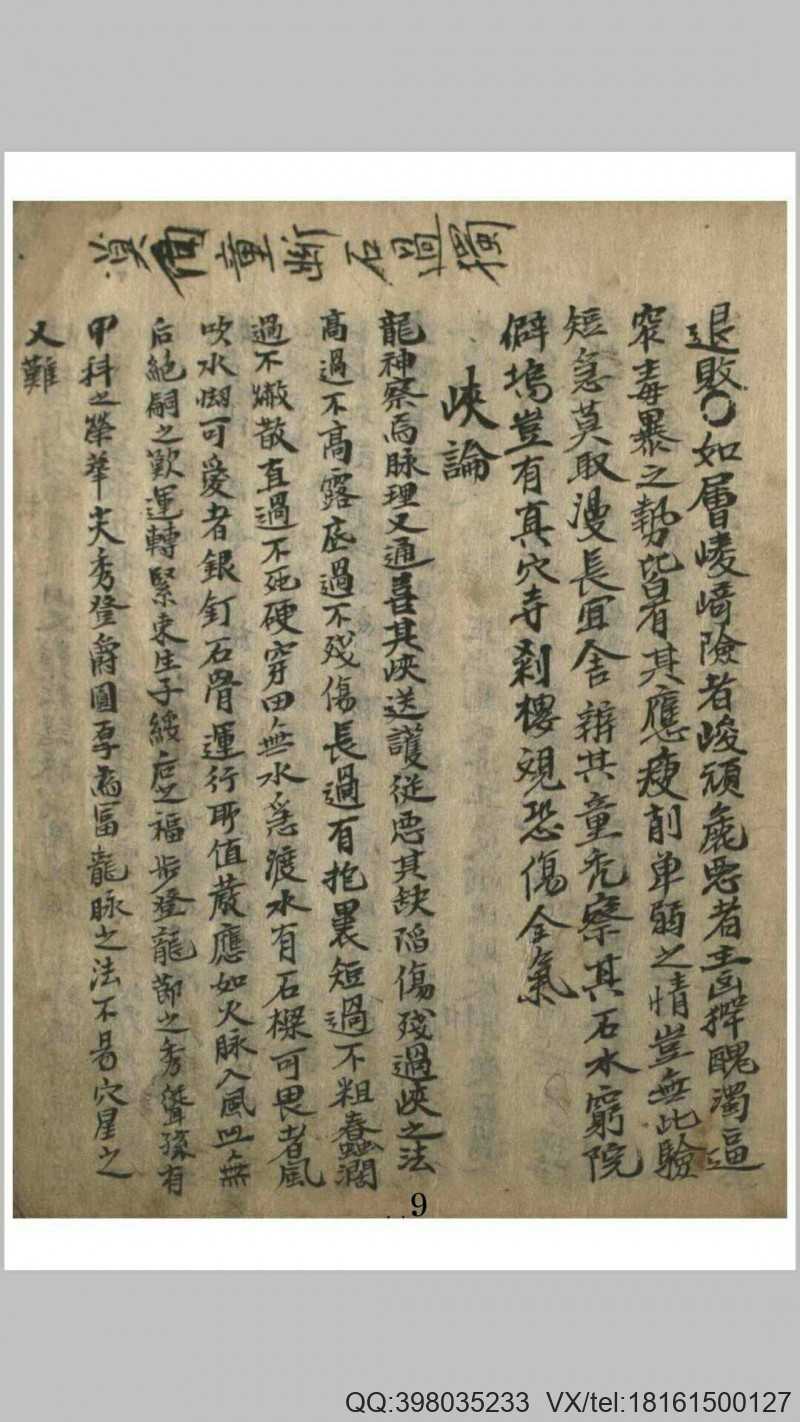 石 斷 童
退敗○如層崚崎險者峻頑麁惡者主凶獰醜濁逼
窄毒暴之勢皆有其應瘦削单弱之情豈無此驗
短急莫取漫長宜舍辨其童禿察其石水窮院
僻塢豈有真穴寺剎樓觀恐傷全氣
峽論
龍神察焉脉理又通喜其峽送護從惡其缺陷傷殘過峽之法
高過不高露底過不殘傷長過有抱裹短過不粗蠢濶
過不散直過不死硬穿田無水為渡水有石樑可畏者風
吹水可愛者銀釘石骨運行所值蔵應如火脉入風無
后絶嗣之歎運轉緊束生子綏庶之福步登龍之秀孫有
甲科之榮華尖秀登爵圓厚富龍脉之法不易穴星之
又難
9
QQ:398035233 VX/tel:18161500127